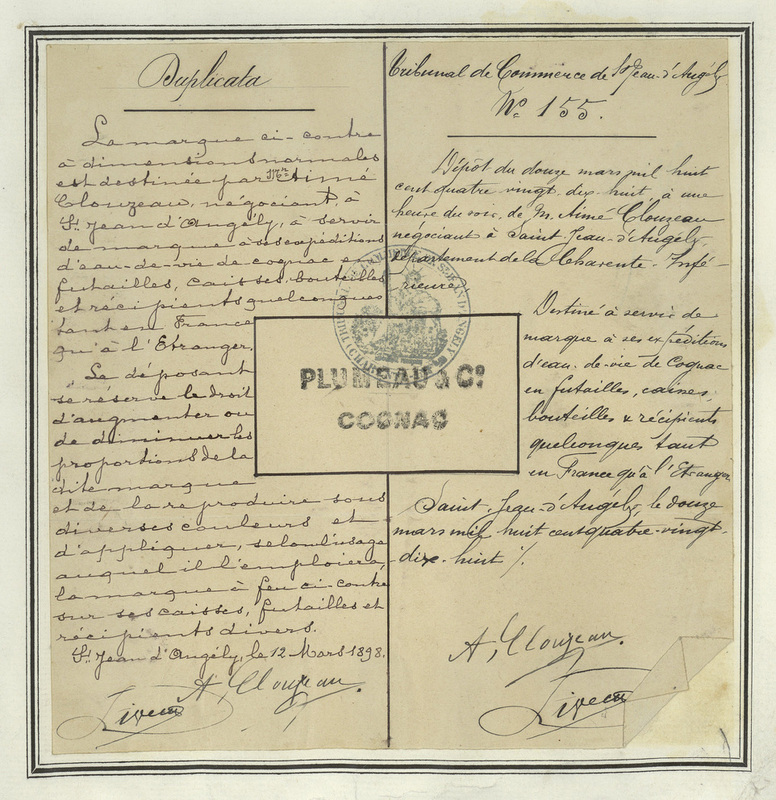 Duplicata
La marque ci-contre
à dimensions normales
est destinée par Mr Aimé
Clouzeau, négociant, à
St Jean d'Angély, à servir
de marque à ses expéditions
d'eau-de-vie de cognac en
futailles, caisses, bouteilles
et récipients quelconques
tant en France
qu'à l'Etranger.
Le déposant
se réserve le droit
d'augmenter ou
de diminuer les
proportions de la
dite marque
et de la reproduire sous
diverses couleurs et
d'appliquer, selon l'usage
auquel il l'emploiera,
la marque à feu ci-contre
sur ses caisses, futailles et
récipients divers.
St Jean d'Angély, le 12 Mars 1898.
A, Clouzeau.
PLUMEAU & Co
COGNAC
Tribunal de Commerce de St Jean-d'Angély
No 155.
Dépôt du douze mars mil huit
cent quatre vingt-dix-huit à une
heure du soir, de M. Aimé Clouzeau
négociant à Saint-Jean-d'Angély,
département de la Charente-Infé-
rieure
Destiné à servir de
marque à ses expéditions
d'eau-de-vie de Cognac
en futailles, caisses,
bouteilles & récipients
quelconques tant
en France qu'à l'Etranger
Saint-Jean-d'Angély, le douze
mars mil huit cent quatre-vingt-
dix-huit /.
A, Clouzeau.